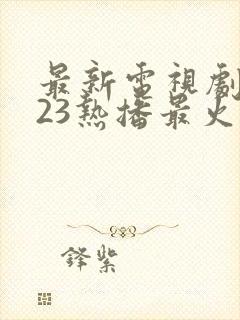 最新電視劇
23熱播最火
鋒紫